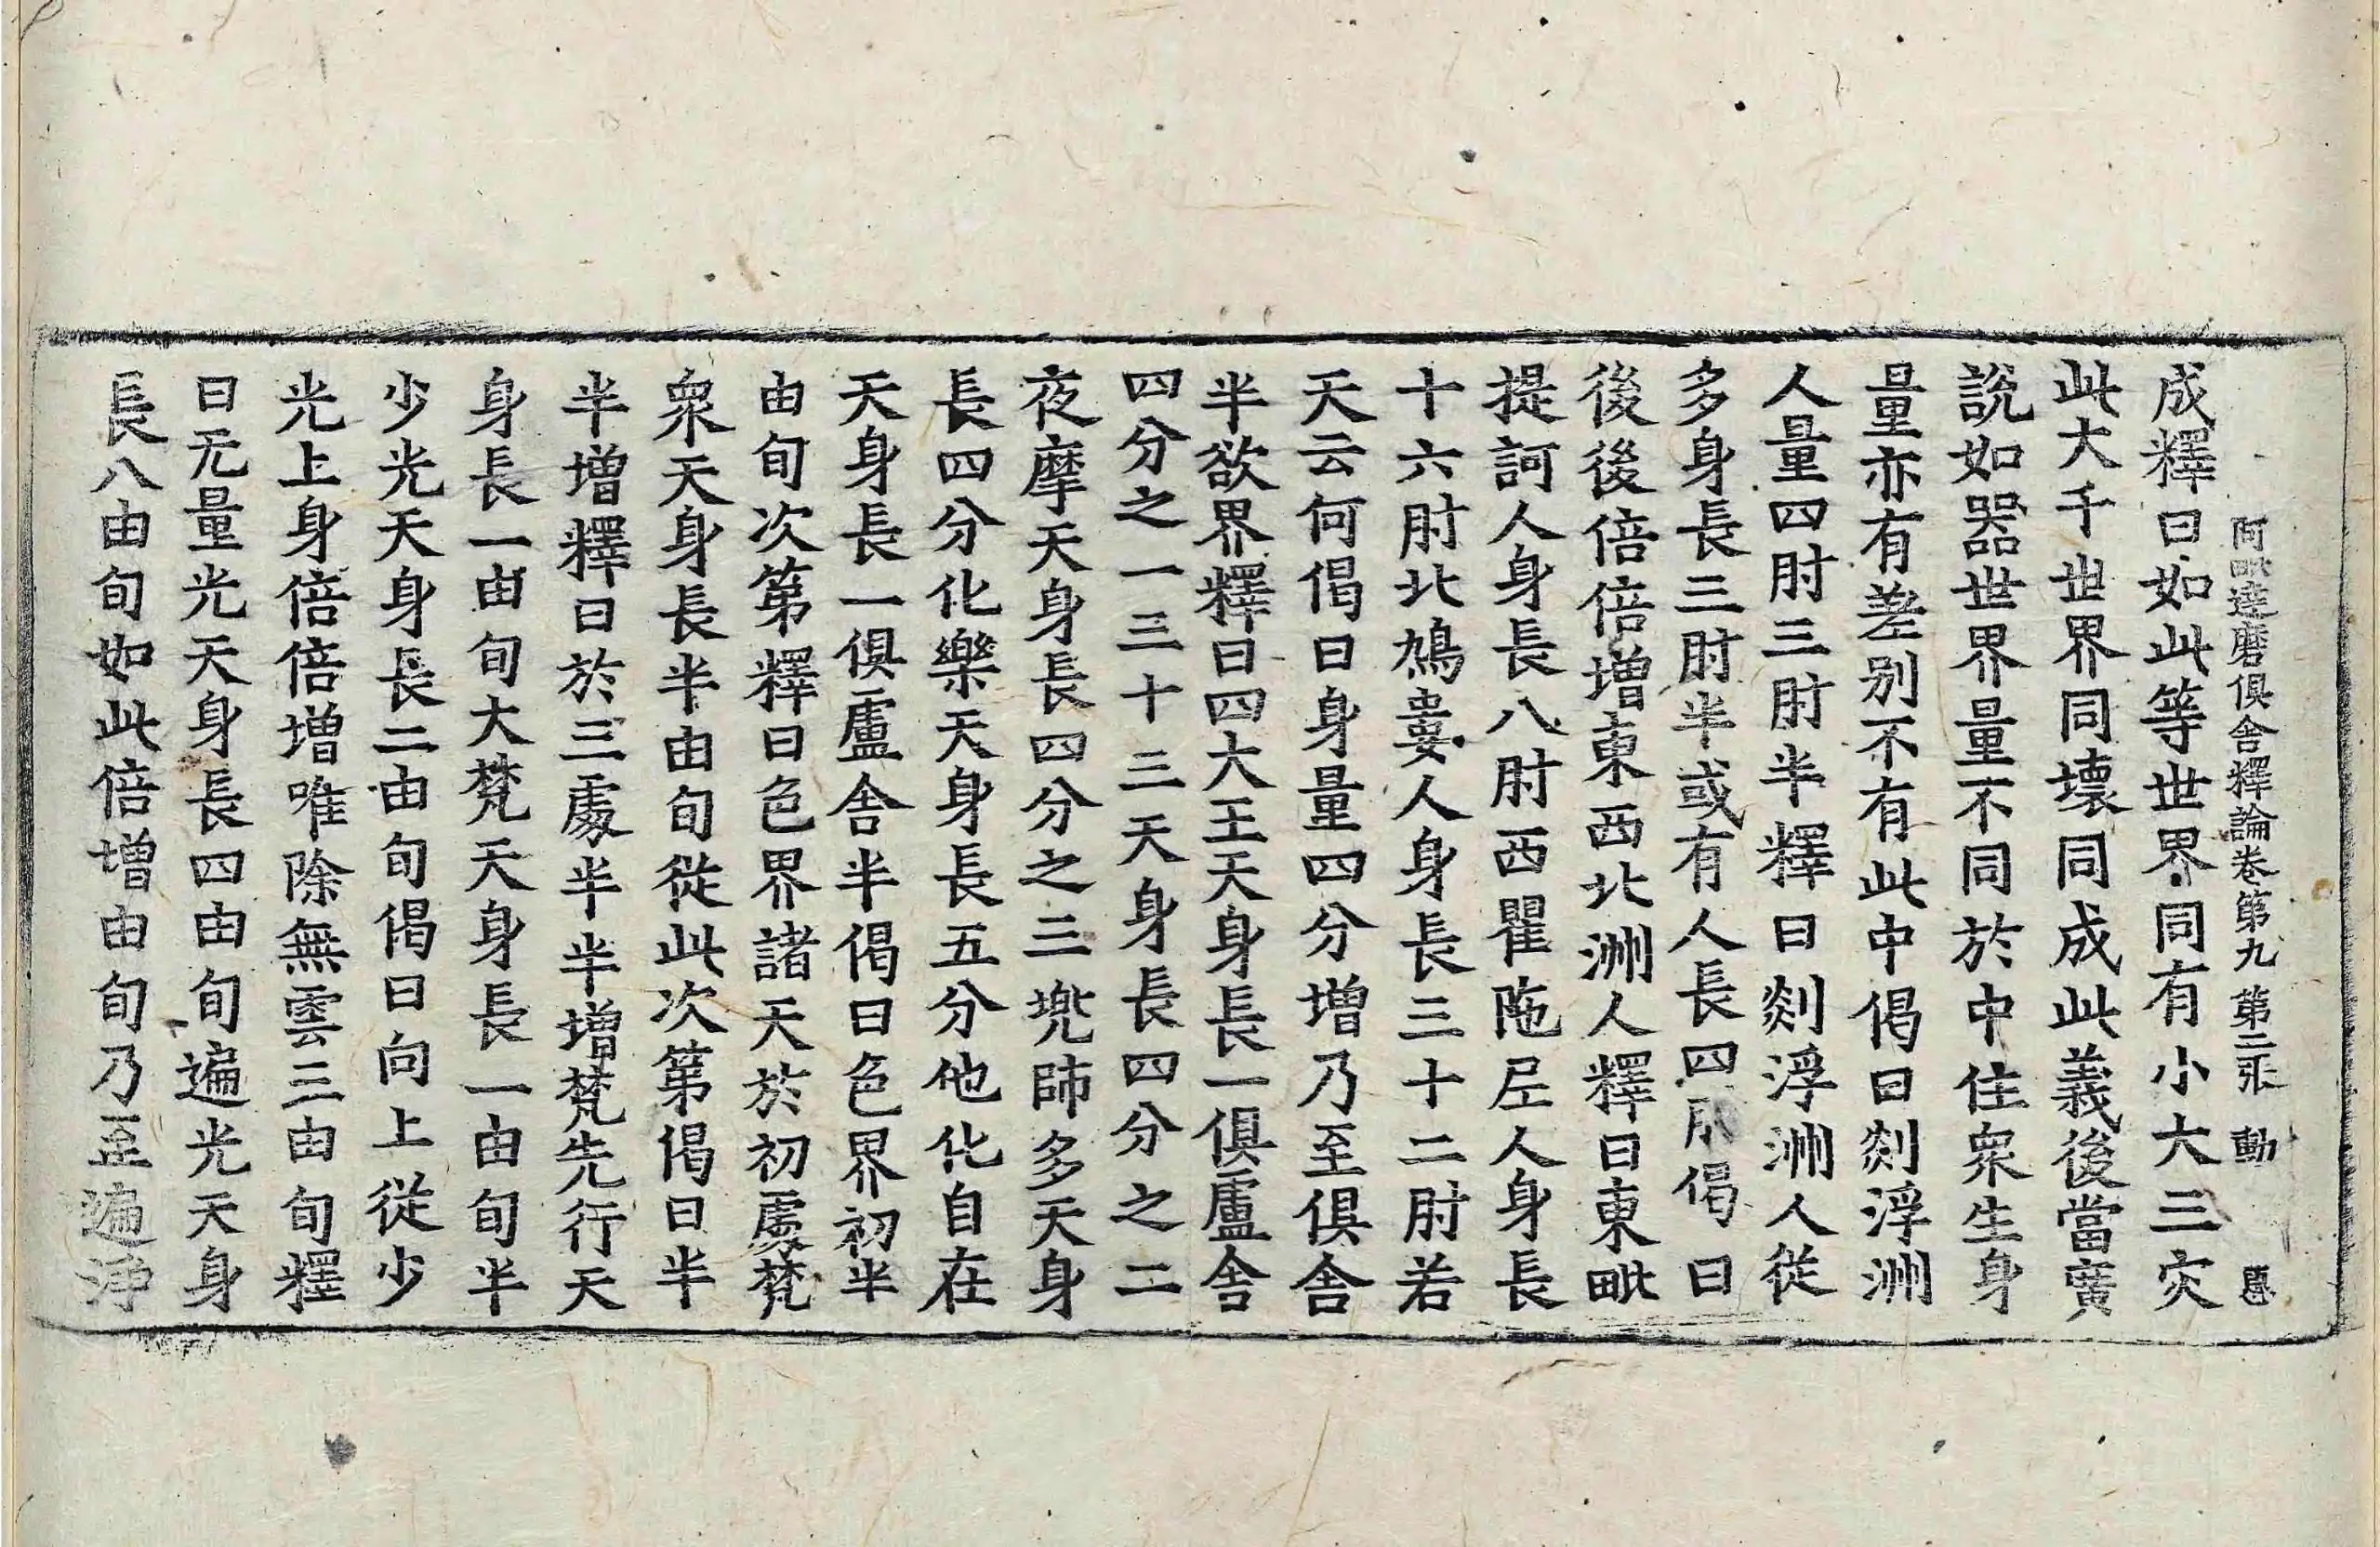 阿毗達磨俱舍釋論卷第九 第二张 動
成釋曰如此等世界同有小大三灾
此大千世界同壞同成此義後當廣
說如器世界量不同於中住衆生身
量亦有差别不有此中偈曰剡浮洲
人量四肘三肘半釋曰剡浮洲人從
多身長三肘半或有人長四肘偈曰
後後倍倍增東西北洲人釋曰東毗
提訶人身長八肘西瞿陁尼人身長
十六肘北鳩婁人身長三十二肘若
天云何偈曰身量四分增乃至俱舍
半欲界釋曰四大王天身長一俱盧舍
四分之一三十三天身長四分之二
夜摩天身長四分之三兠師多天身
長四分化樂天身長五分他化自在
天身長一俱盧舍半偈曰色界初半
由旬次第釋曰色界諸天於初處梵
衆天身長半由旬從此次第偈曰半
半增釋曰於三處半半增梵先行天
身長一由旬大梵天身長一由旬半
少光天身長二由旬偈曰向上從少
光上身倍倍增唯除無雲三由旬釋
曰无量光天身長四由旬遍光天身
長八由旬如此倍增由旬乃至遍淨